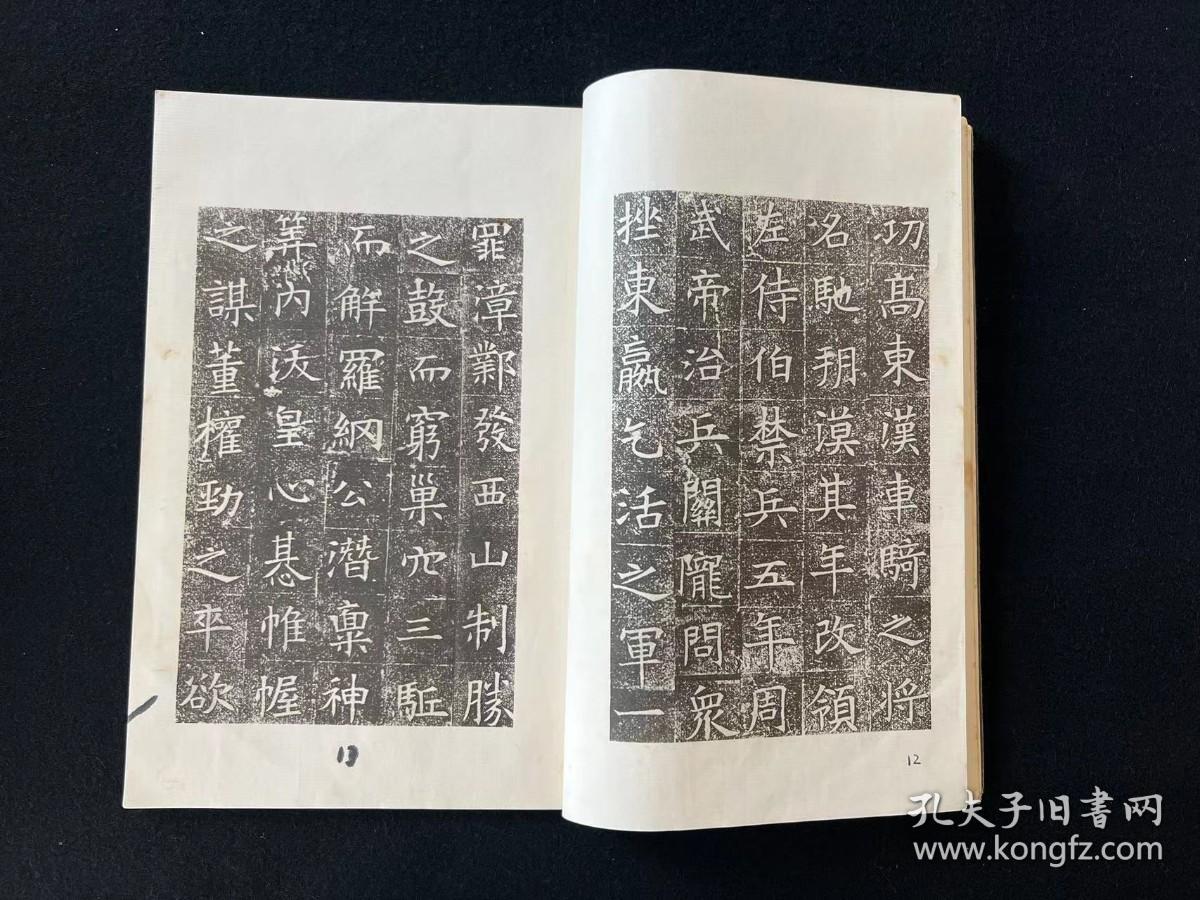 功高東漢車騎之将
名馳朔漠其年改領
左侍伯禁兵五年周
武帝治兵關隴問衆
挫東嬴乞活之軍一
12
罪漳鄴發西山制勝
之鼓而窮巢穴三駈
而解羅網公潛稟神
筭內沃皇心惎帷幄
之謀董權勁之卒欲
13
孔夫子旧書网
www.kongfz.com